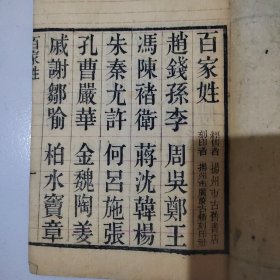 百家姓
趙錢孫李 周吳鄭王
馮陳褚衛 蔣沈韓楊
朱秦尤許 何呂施張
孔曹嚴華 金魏陶姜
戚謝鄒喻 柏水竇章
百家姓
經售者 揚州市古舊書店
刻印者 揚州市廣陵古籍刻印社